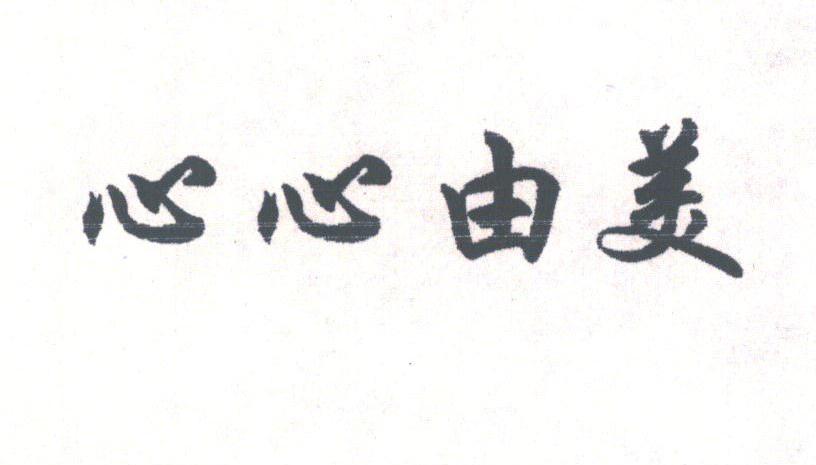 心心由美